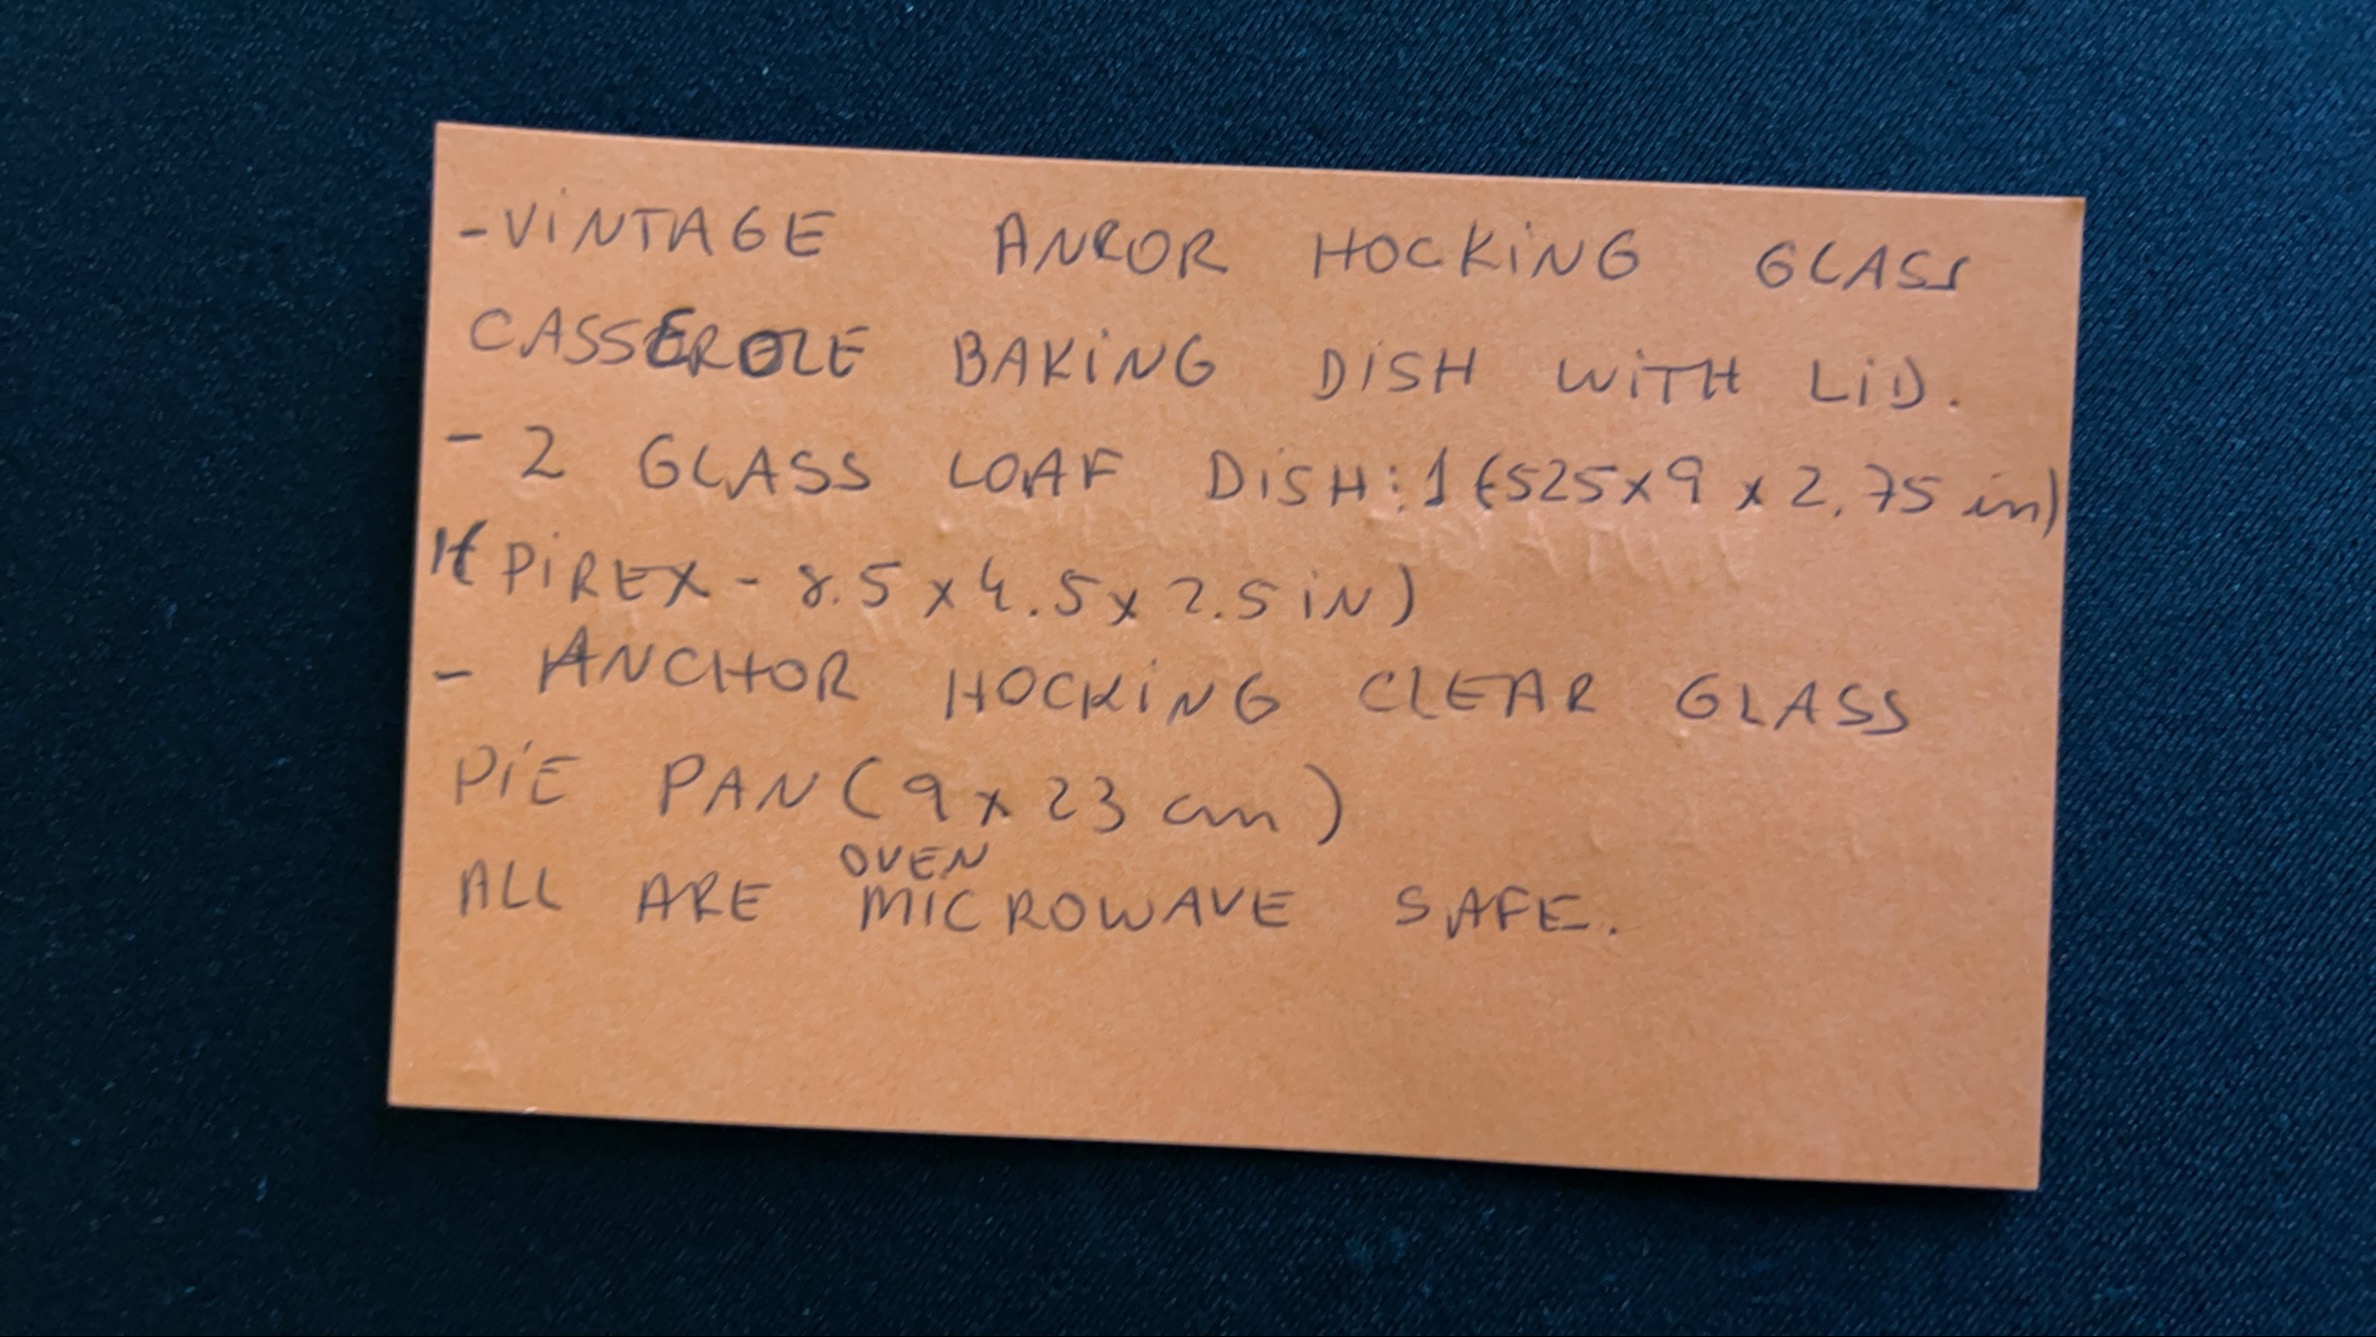 - VINTAGE ANCOR HOCKING GLASS
CASSEROLE BAKING DISH WITH LID.
- 2 GLASS LOAF DISH: 1 (525x9 x 2.75 in)
1( PIREX - 8.5 x 4.5 x 2.5 IN)
- ANCHOR HOCKING CLEAR GLASS
PIE PAN (9 x 23 cm)
OVEN
ALL ARE MICROWAVE SAFE.